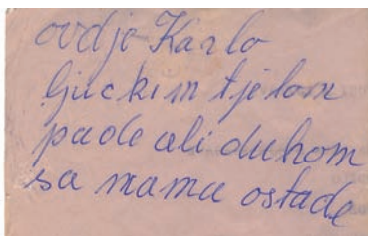 ovdje Karlo
ljuckim tjelom
pade ali duhom
sa nama ostade